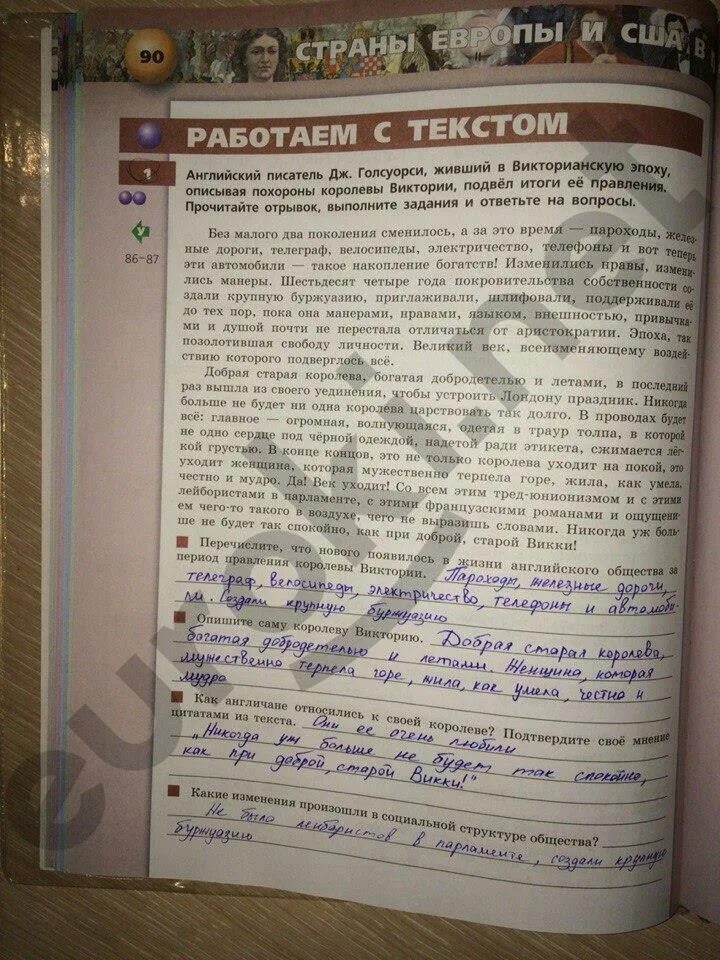 90
СТРАНЫ ЕВРОПЫ И США В
РАБОТАЕМ С ТЕКСТОМ
1
Английский писатель Дж. Голсуорси, живший в Викторианскую эпоху,
описывая похороны королевы Виктории, подвёл итоги её правления.
Прочитайте отрывок, выполните задания и ответьте на вопросы.
У
86–87
Без малого два поколения сменилось, а за это время — пароходы, желез-
ные дороги, телеграф, велосипеды, электричество, телефоны и вот теперь
эти автомобили — такое накопление богатств! Изменились нравы, измени-
лись манеры. Шестьдесят четыре года покровительства собственности со-
здали крупную буржуазию, приглаживали, шлифовали, поддерживали её
до тех пор, пока она манерами, нравами, языком, внешностью, привычка-
ми и душой почти не перестала отличаться от аристократии. Эпоха, так
позолотившая свободу личности. Великий век, всеизменяющему воздей-
ствию которого подверглось всё.
Добрая старая королева, богатая добродетелью и летами, в последний
раз вышла из своего уединения, чтобы устроить Лондону праздник. Никогда
больше не будет ни одна королева царствовать так долго. В проводах будет
всё: главное — огромная, волнующаяся, одетая в траур толпа, в которой
не одно сердце под чёрной одеждой, надетой ради этикета, сжимается лёг-
кой грустью. В конце концов, это не только королева уходит на покой, это
уходит женщина, которая мужественно терпела горе, жила, как умела,
честно и мудро. Да! Век уходит! Со всем этим тред-юнионизмом и с этими
лейбористами в парламенте, с этими французскими романами и ощущени-
ем чего-то такого в воздухе, чего не выразишь словами. Никогда уж боль-
ше не будет так спокойно, как при доброй, старой Викки!
Перечислите, что нового появилось в жизни английского общества за
период правления королевы Виктории. Пароходы, железные дороги,
телеграф, велосипеды, электричество, телефоны и автомоби-
ли. Создали крупную буржуазию
Опишите саму королеву Викторию. Добрая старая королева,
богатая добродетелью и летами. Женщина, которая
мужественно терпела горе, жила, как умела, честно и
мудро
Как англичане относились к своей королеве? Подтвердите своё мнение
цитатами из текста. Они ее очень любили
"Никогда уж больше не будет так спокойно,
как при доброй, старой Викки!"
Какие изменения произошли в социальной структуре общества?
Не была лейбористов в парламенте, создали крупную
буржуазию
eurokiinet